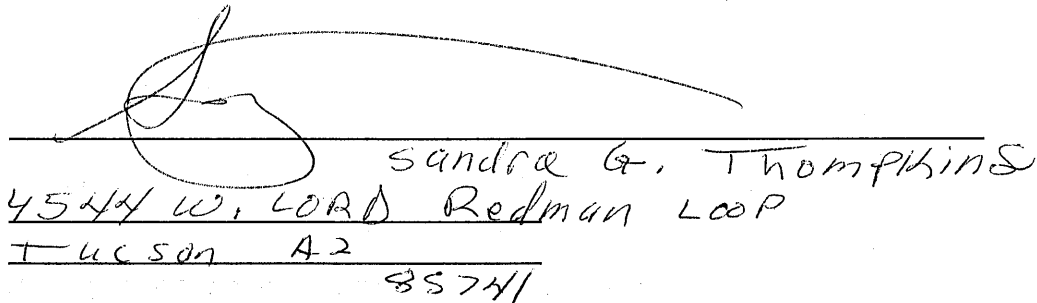 Sandra G. Thompkins
4544 W. LORD Redman LOOP
Tucson AZ
85741